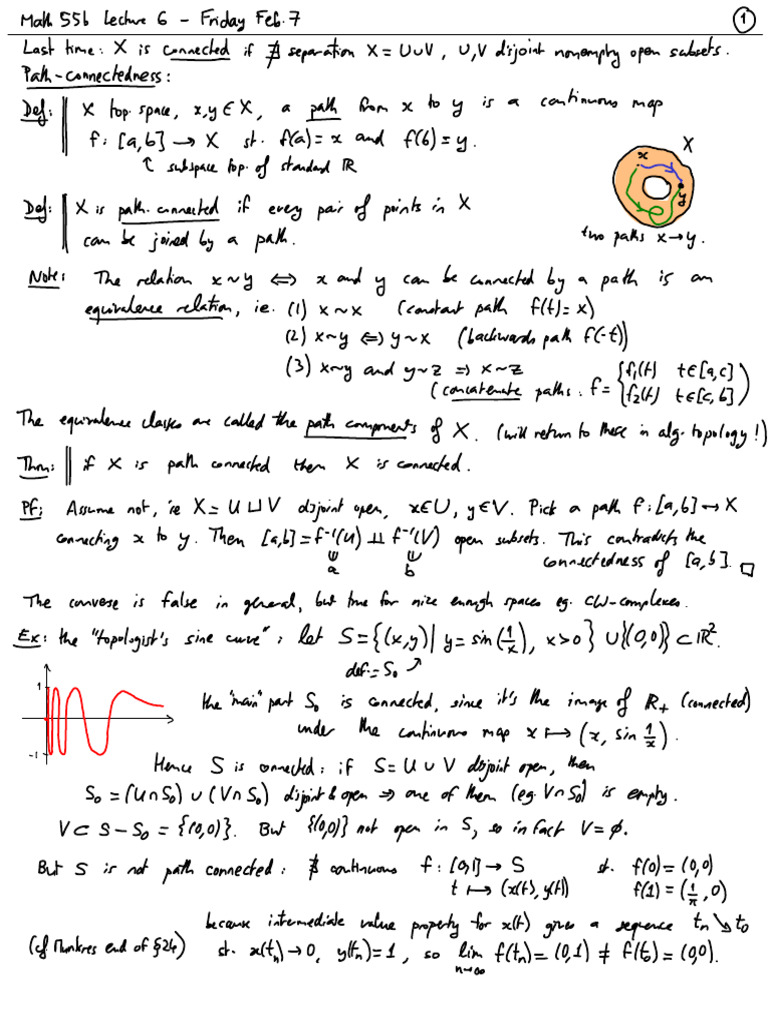 Math 55b Lecture 6 - Friday Feb. 7
1
Last time: X is connected if ∄ separation X = U∪V, U,V disjoint nonempty open subsets.
Path-connectedness:
Def: X top. space, x,y ∈ X, a path from x to y is a continuous map
f: [a,b] → X st. f(a) = x and f(b) = y.
↑ subspace top. of standard ℝ
x
X
y
two paths x→y.
Def: X is path-connected if every pair of points in X
can be joined by a path.
Note: The relation x~y ⇔ x and y can be connected by a path is an
equivalence relation, ie. (1) x~x (constant path f(t)=x)
(2) x~y ⇔ y~x (backwards path f(-t))
(3) x~y and y~z ⇒ x~z
(concatenate paths: f = { f₁(t) t∈[a,c]
f₂(t) t∈[c,b] )
The equivalence classes are called the path components of X. (will return to these in alg. topology!)
Thm: if X is path connected then X is connected.
Pf: Assume not, ie X = U ⊔ V disjoint open, x∈U, y∈V. Pick a path f: [a,b] → X
connecting x to y. Then [a,b] = f⁻¹(U) ⊔ f⁻¹(V) open subsets. This contradicts the
a b connectedness of [a,b]. □
The converse is false in general, but true for nice enough spaces eg. CW-complexes.
Ex: the "topologist's sine curve": let S = {(x,y) | y = sin(1/x), x>0} ∪ {(0,0)} ⊂ ℝ².
def: = S₀ ↗
1
-1
the "main" part S₀ is connected, since it's the image of ℝ₊ (connected)
under the continuous map x ↦ (x, sin 1/x).
Hence S is connected: if S = U ∪ V disjoint open, then
S₀ = (U∩S₀) ∪ (V∩S₀) disjoint & open ⇒ one of them (eg. V∩S₀) is empty.
V ⊂ S - S₀ = {(0,0)}. But {(0,0)} not open in S, so in fact V = ∅.
But S is not path connected: ∄ continuous f: [0,1] → S st. f(0) = (0,0)
t ↦ (x(t), y(t)) f(1) = (1/π, 0)
because intermediate value property for x(t) gives a sequence tₙ ↘ t₀
(cf Munkres end of §24) st. x(tₙ) → 0, y(tₙ) = 1, so lim n→∞ f(tₙ) = (0,1) ≠ f(t₀) = (0,0).